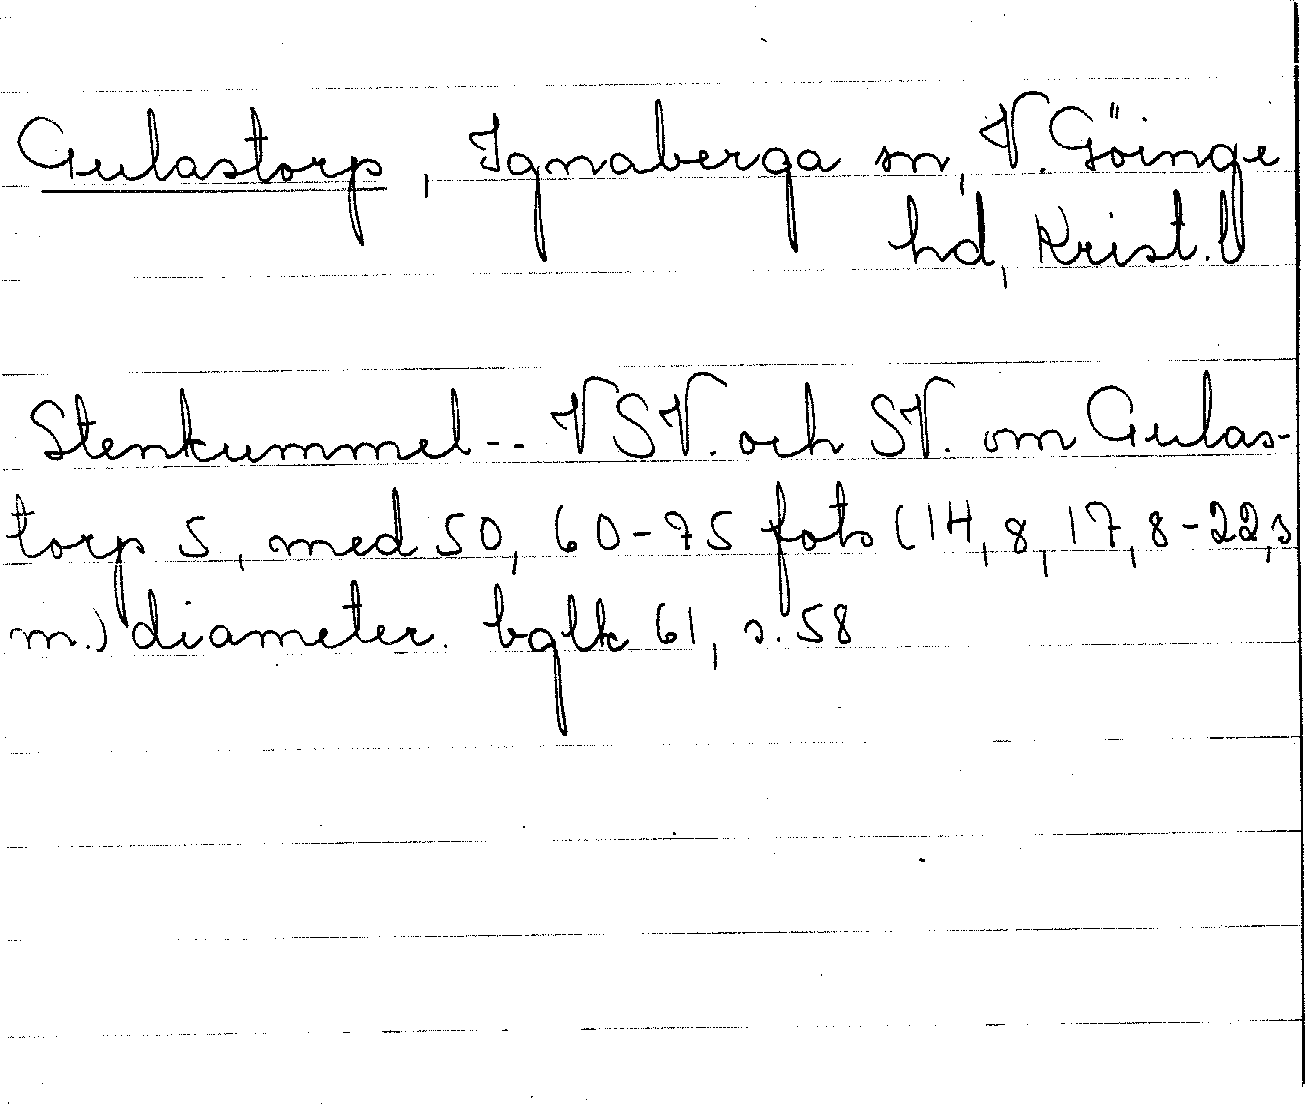 Gulastorp, Ignaberga sn, V. Göinge
hd, Krist. l
Stenkummel -- VSV. och SV. om Gulas-
torp 5, med 50, 60-75 fots (14,8, 17,8-22,3
m.) diameter. bglk 61, s. 58